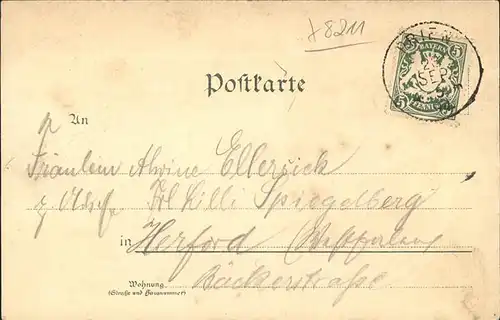 x 8211
PRIEN
SEP
BAYERN
5 5
5 PFENNIG 5
Postkarte
An
Fräulein Alwine Ellersiek
Frl Lilli Spiegelberg
in Herford Westfalen
Wohnung Bäckerstraße
(Straße und Hausnummer)